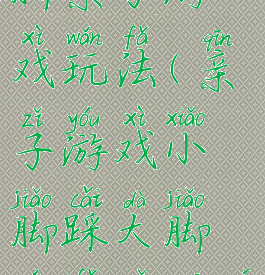 xì wán fǎ qīn
戏玩法(亲
zǐ yóu xì xiǎo
子游戏小
jiǎo cǎi dà jiǎo
脚踩大脚